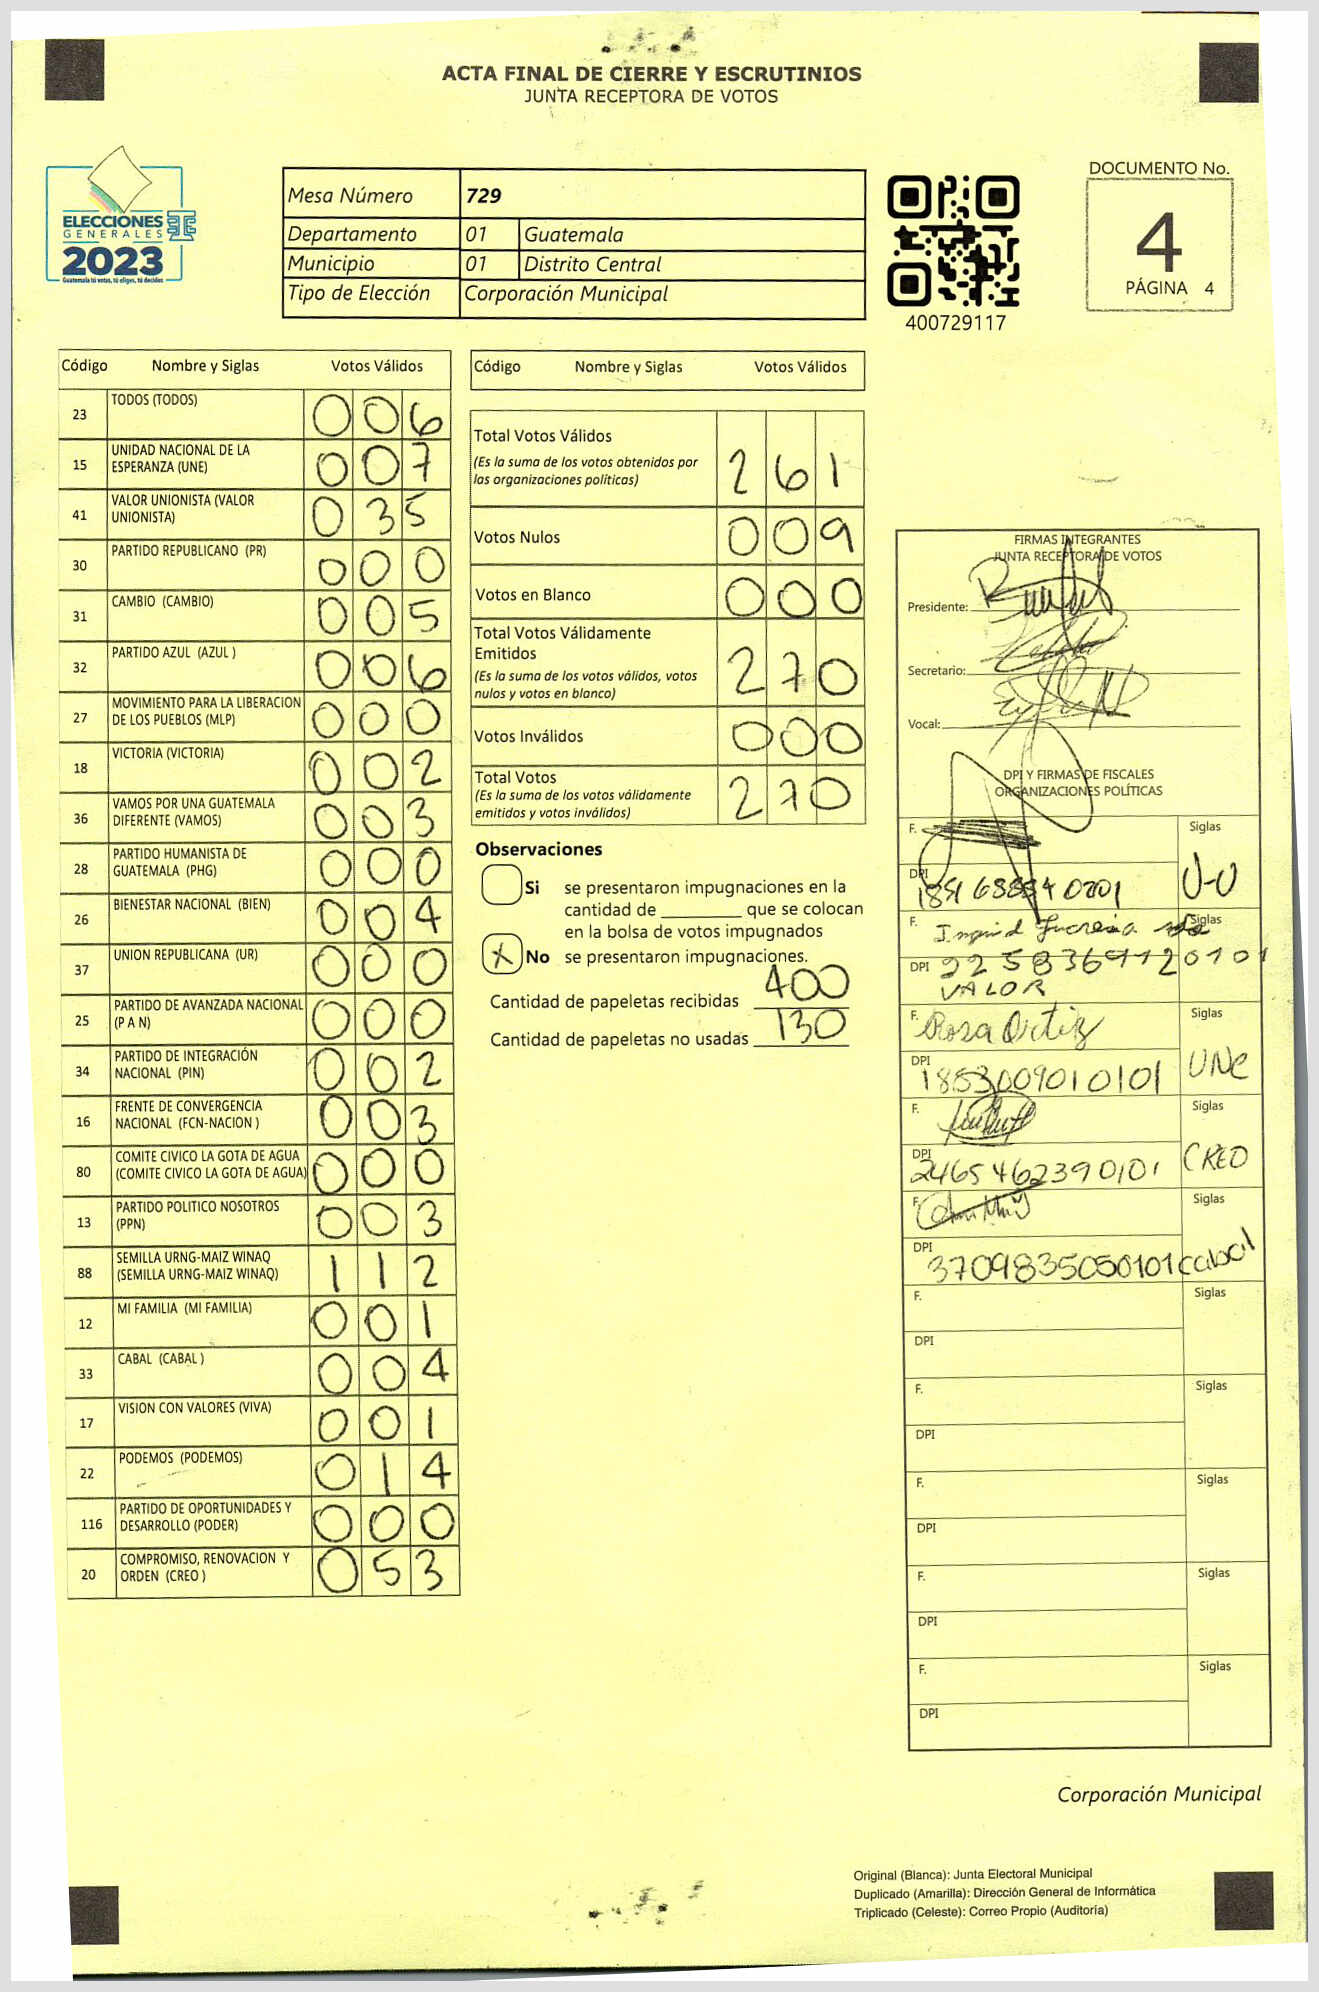 ACTA FINAL DE CIERRE Y ESCRUTINIOS
JUNTA RECEPTORA DE VOTOS
ELECCIONES
GENERALES
2023
Guatemala tú votas, tú eliges, tú decides
Mesa Número 729
Departamento 01 Guatemala
Municipio 01 Distrito Central
Tipo de Elección Corporación Municipal
400729117
DOCUMENTO No.
4
PÁGINA 4
Código Nombre y Siglas Votos Válidos
23 TODOS (TODOS) 0 0 6
15 UNIDAD NACIONAL DE LA ESPERANZA (UNE) 0 0 7
41 VALOR UNIONISTA (VALOR UNIONISTA) 0 3 5
30 PARTIDO REPUBLICANO (PR) 0 0 0
31 CAMBIO (CAMBIO) 0 0 5
32 PARTIDO AZUL (AZUL ) 0 0 6
27 MOVIMIENTO PARA LA LIBERACION DE LOS PUEBLOS (MLP) 0 0 0
18 VICTORIA (VICTORIA) 0 0 2
36 VAMOS POR UNA GUATEMALA DIFERENTE (VAMOS) 0 0 3
28 PARTIDO HUMANISTA DE GUATEMALA (PHG) 0 0 0
26 BIENESTAR NACIONAL (BIEN) 0 0 4
37 UNION REPUBLICANA (UR) 0 0 0
25 PARTIDO DE AVANZADA NACIONAL (P A N) 0 0 0
34 PARTIDO DE INTEGRACIÓN NACIONAL (PIN) 0 0 2
16 FRENTE DE CONVERGENCIA NACIONAL (FCN-NACION ) 0 0 3
80 COMITE CIVICO LA GOTA DE AGUA (COMITE CIVICO LA GOTA DE AGUA) 0 0 0
13 PARTIDO POLITICO NOSOTROS (PPN) 0 0 3
88 SEMILLA URNG-MAIZ WINAQ (SEMILLA URNG-MAIZ WINAQ) 1 1 2
12 MI FAMILIA (MI FAMILIA) 0 0 1
33 CABAL (CABAL ) 0 0 4
17 VISION CON VALORES (VIVA) 0 0 1
22 PODEMOS (PODEMOS) 0 1 4
116 PARTIDO DE OPORTUNIDADES Y DESARROLLO (PODER) 0 0 0
20 COMPROMISO, RENOVACION Y ORDEN (CREO ) 0 5 3
Código Nombre y Siglas Votos Válidos
Total Votos Válidos 2 6 1
(Es la suma de los votos obtenidos por
las organizaciones políticas)
Votos Nulos 0 0 9
Votos en Blanco 0 0 0
Total Votos Válidamente
Emitidos 2 7 0
(Es la suma de los votos válidos, votos
nulos y votos en blanco)
Votos Inválidos 0 0 0
Total Votos 2 7 0
(Es la suma de los votos válidamente
emitidos y votos inválidos)
Observaciones
Si se presentaron impugnaciones en la
cantidad de ________ que se colocan
en la bolsa de votos impugnados
X No se presentaron impugnaciones.
Cantidad de papeletas recibidas 400
Cantidad de papeletas no usadas 130
FIRMAS INTEGRANTES
JUNTA RECEPTORA DE VOTOS
Presidente:
Secretario:
Vocal:
DPI Y FIRMAS DE FISCALES
ORGANIZACIONES POLÍTICAS
F. Siglas
DPI U-U
F. Ingrid Lucrecia Siglas
DPI 2258369120101
VALOR
F. Rosa Ortiz Siglas
DPI 1853009010101 UNE
F. Siglas
DPI 2465462390101 CREO
F. Siglas
DPI 3709835050101 cabal
F. Siglas
DPI
F. Siglas
DPI
F. Siglas
DPI
F. Siglas
DPI
F. Siglas
DPI
Corporación Municipal
Original (Blanca): Junta Electoral Municipal
Duplicado (Amarilla): Dirección General de Informática
Triplicado (Celeste): Correo Propio (Auditoría)